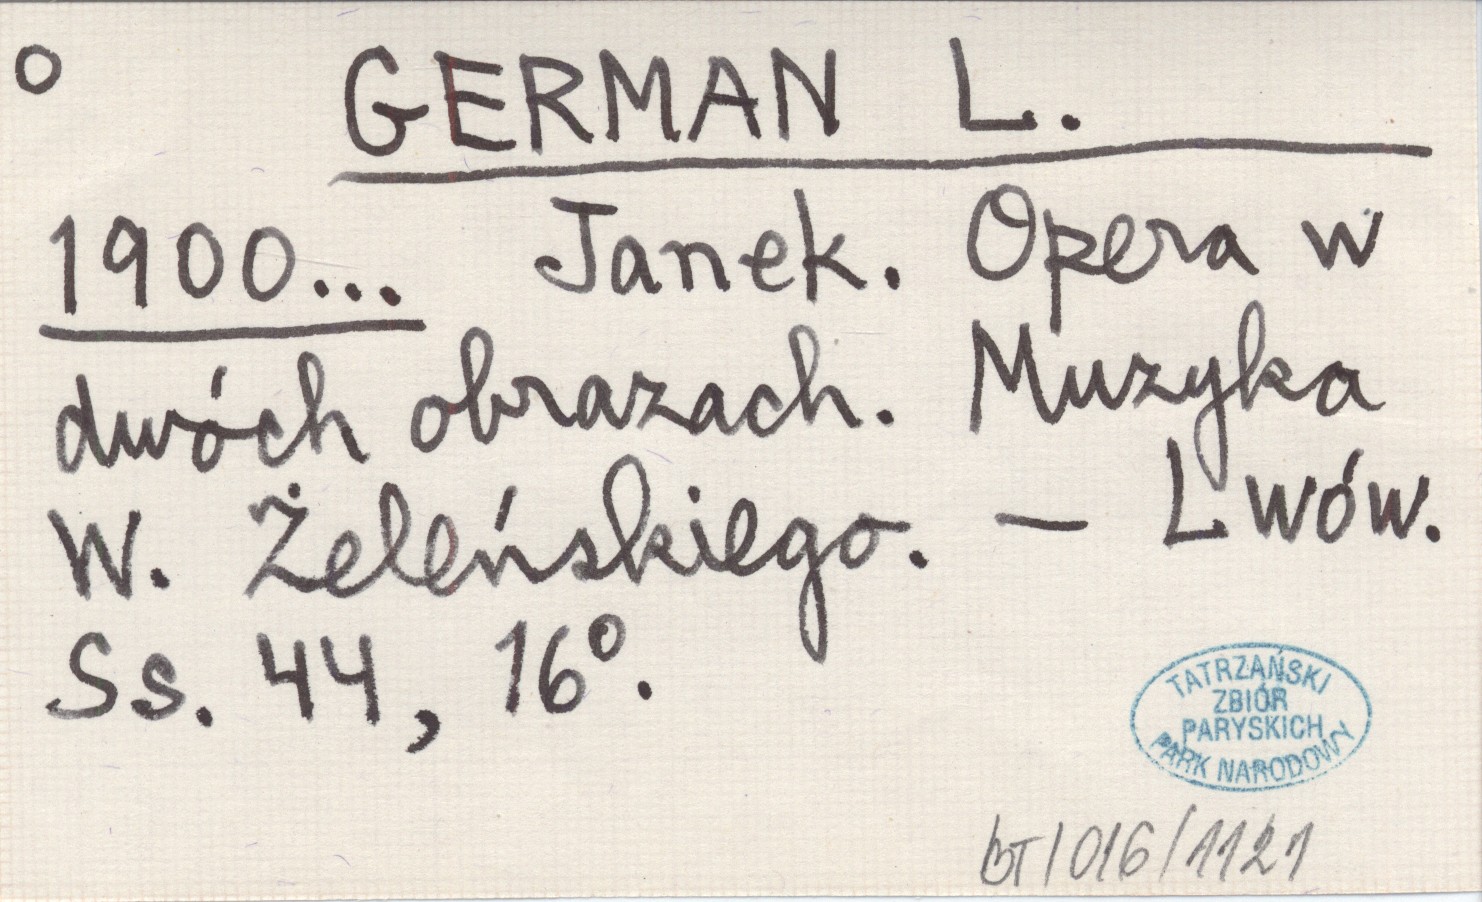 o GERMAN L.
1900... Janek. Opera w
dwóch obrazach. Muzyka
W. Żeleńskiego. — Lwów.
Ss. 44, 16°.
TATRZAŃSKI
ZBIÓR
PARYSKICH
PARK NARODOWY
BT/016/1121